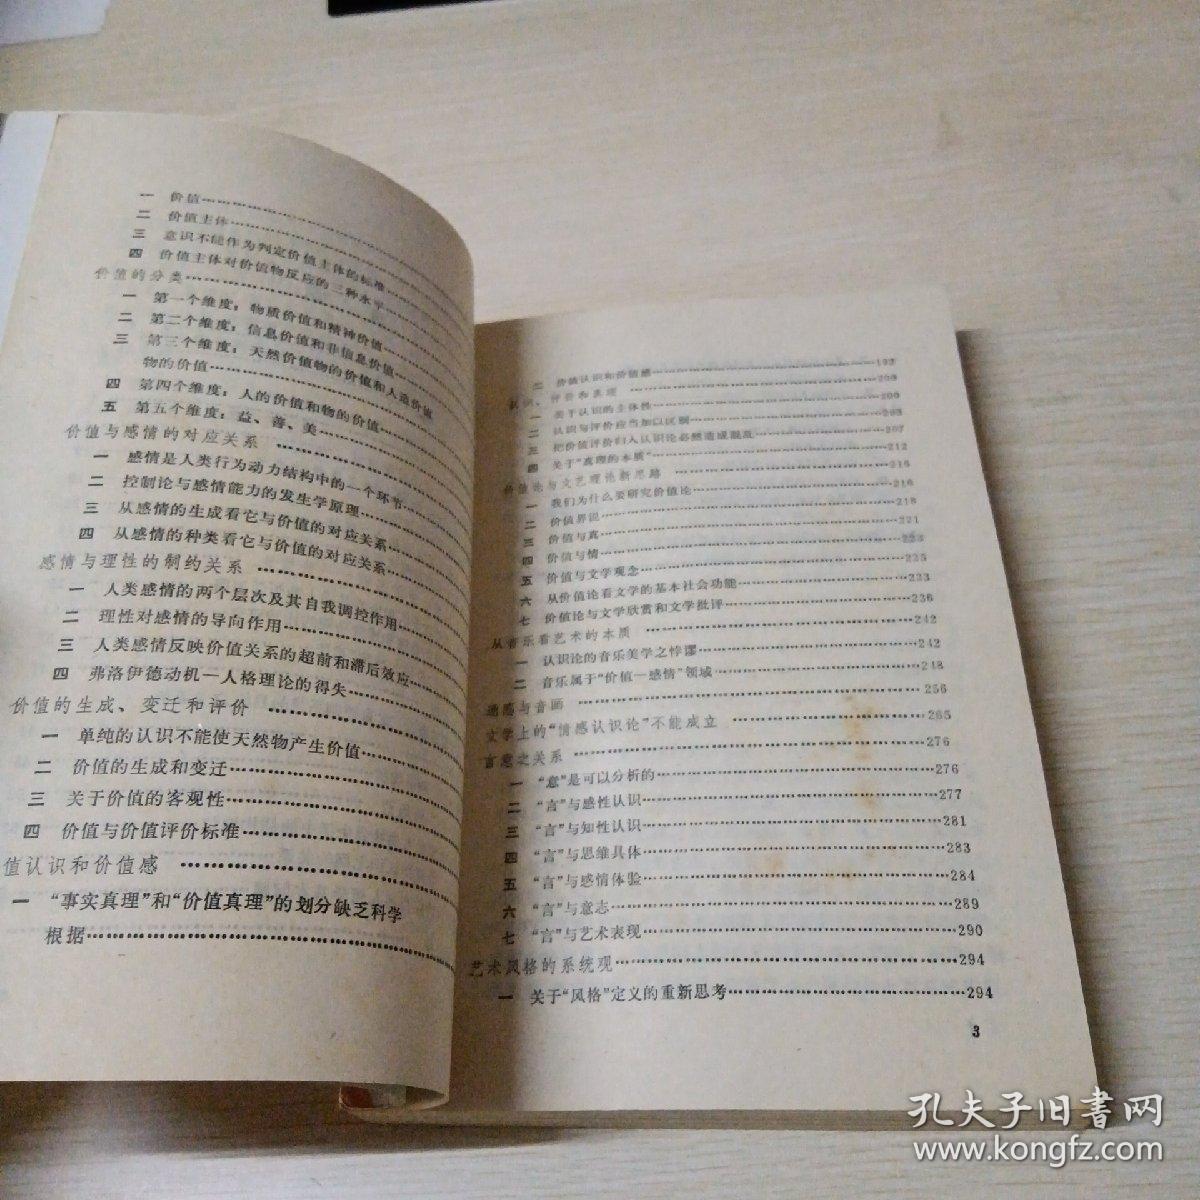 一 价值
二 价值主体
三 意识不能作为判定价值主体的标准
四 价值主体对价值物反应的三种水平
价值的分类
一 第一个维度：物质价值和精神价值
二 第二个维度：信息价值和非信息价值
三 第三个维度：天然价值物的价值和人造价值
物的价值
四 第四个维度：人的价值和物的价值
五 第五个维度：益、善、美
价值与感情的对应关系
一 感情是人类行为动力结构中的一个环节
二 控制论与感情能力的发生学原理
三 从感情的生成看它与价值的对应关系
四 从感情的种类看它与价值的对应关系
感情与理性的制约关系
一 人类感情的两个层次及其自我调控作用
二 理性对感情的导向作用
三 人类感情反映价值关系的超前和滞后效应
四 弗洛伊德动机—人格理论的得失
价值的生成、变迁和评价
一 单纯的认识不能使天然物产生价值
二 价值的生成和变迁
三 关于价值的客观性
四 价值与价值评价标准
值认识和价值感
一 “事实真理”和“价值真理”的划分缺乏科学
根据
二 价值认识和价值感 193
认识、评价和真理 200
一 关于认识的主体性 200
二 认识与评价应当加以区别 203
三 把价值评价归入认识论必然造成混乱 207
四 关于“真理的本质” 212
价值论与文艺理论新思路 216
一 我们为什么要研究价值论 216
二 价值界说 218
三 价值与真 221
四 价值与情 223
五 价值与文学观念 225
六 从价值论看文学的基本社会功能 233
七 价值论与文学欣赏和文学批评 236
从音乐看艺术的本质 242
一 认识论的音乐美学之悖谬 242
二 音乐属于“价值—感情”领域 248
通感与音画 256
文学上的“情感认识论”不能成立 265
言意之关系 276
一 “意”是可以分析的 276
二 “言”与感性认识 277
三 “言”与知性认识 281
四 “言”与思维具体 283
五 “言”与感情体验 284
六 “言”与意志 289
七 “言”与艺术表现 290
艺术风格的系统观 294
一 关于“风格”定义的重新思考 294
3
孔夫子旧書网
www.kongfz.com